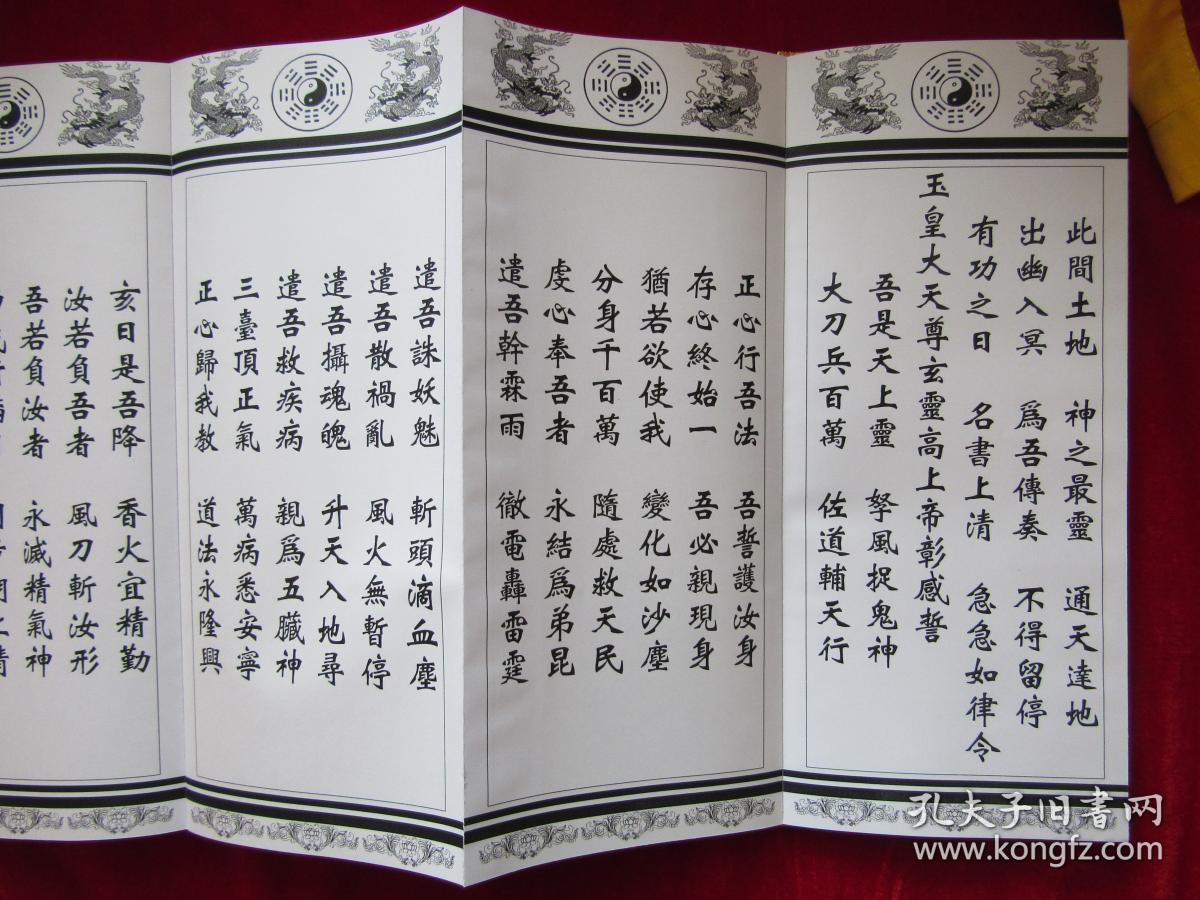 此間土地 神之最靈 通天達地
出幽入冥 爲吾傳奏 不得留停
有功之日 名書上清 急急如律令
玉皇大天尊玄靈高上帝彰感誓
吾是天上靈 拏風捉鬼神
大刀兵百萬 佐道輔天行
正心行吾法 吾誓護汝身
存心終始一 吾必親現身
猶若欲使我 變化如沙塵
分身千百萬 隨處救天民
虔心奉吾者 永結爲弟昆
遣吾幹霖雨 徹電轟雷霆
遣吾誅妖魅 斬頭滴血塵
遣吾散禍亂 風火無暫停
遣吾攝魂魄 升天入地尋
遣吾救疾病 親爲五臟神
三臺頂正氣 萬病悉安寧
正心歸我教 道法永隆興
亥日是吾降 香火宜精勤
汝若負吾者 風刀斬汝形
吾若負汝者 永滅精氣神
孔夫子旧书网
www.kongfz.com